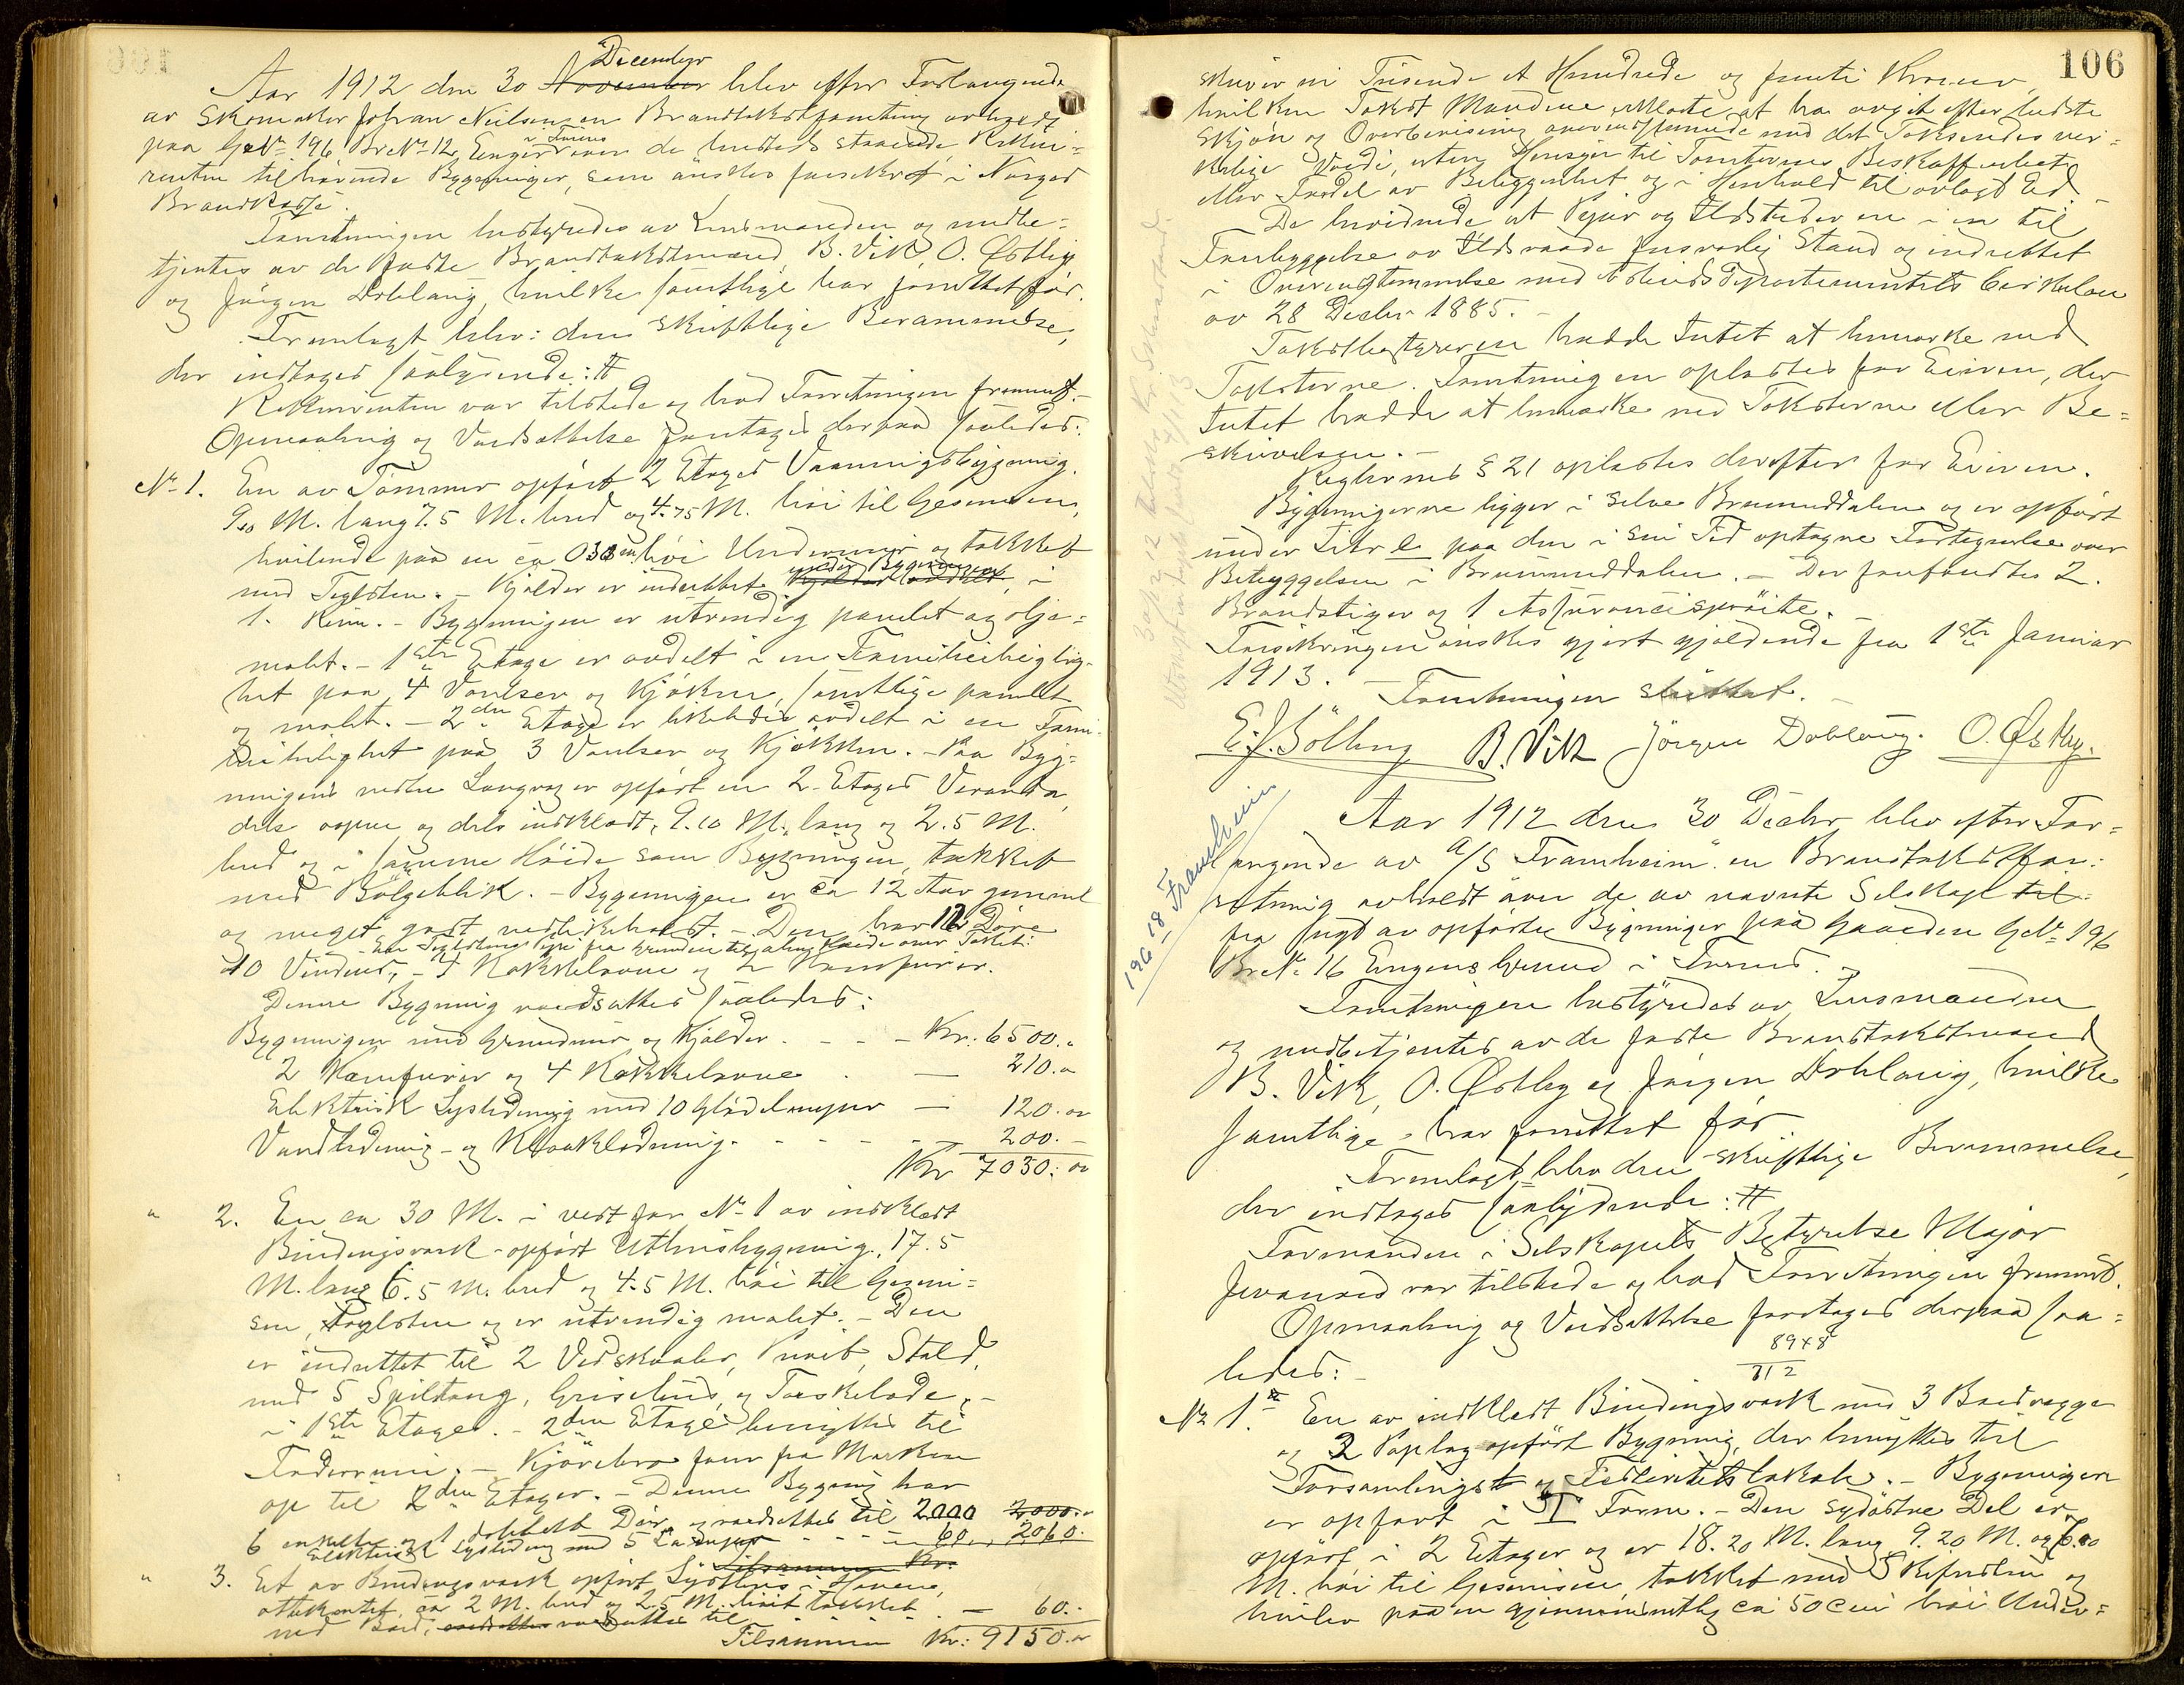 December
Aar 1912 den 30 November blev efter Forlangende
av Skomaker Johan Nielsen en Brandtakstforretning avholdt
i Furnes
paa GrNr 196 BrNr 12, Enger over de husteds staaende, Rekvi=
renten tilhørende Bygninger, som ønskes forsikret i Norges
Brandkasse.
Forretningen bestyredes av Lensmanden og medbe=
tjentes av de faste Brandtakstmænd B. Vik, O. Østby
og Jørgen Doblaug, hvilke samtlige har forrettet før.
Fremlagt blev: den skriftlige Berammelse,
der indtages saalydende: #
Rekvirenten var tilstede og bad Forretningen fremmet.-
Opmaaling og Værdsættelse foretages derpaa saaledes:
No 1. En av Tømmer opført 2 Etages Vaaningsbygning.
9.10 M. lang 7.5 M. bred og 4.75 M. høi til Gesimsen,
hvilende paa en ca 0.33 cm. høi Undermur og tækket
under Bygningen
med Teglsten. - Kjelder er indrettet i
1. Rum. - Bygningen er utvendig panelet og olje=
malt. - 1ste Etage er avdelt i en Familieleilig-
het paa 4 Værelser og Kjøkken, samtlige panelet
og malt. - 2den Etage er likeledes avdelt i en Fami-
lieleilighet paa 3 Værelser og Kjøkken. - Paa Byg=
ningens nedre Langvæg er opført en 2 Etages Veranda,
dels aapen og dels indklædt, 9.10 M. lang og 2.5 M.
bred og i samme Høide som Bygningen, tækket
med Bølgeblik. - Bygningen er ca 12 Aar gammel
og meget godt vedlikeholdt. - Den har 12 Døre
En Teglstens Pipe fra Grunden til alm Høide over Taket:
10 Vinduer, - 4 Kakkelovne og 2 Komfurer.
Denne Bygning værdsættes saaledes:
Bygningen med Grundmur og Kjelder - - - Kr. 6500.-
2 Komfurer og 4 Kakkelovne - — 210.-
Elektrisk Lysledning med 10 Glødelamper — 120.00
Vandledning - og Kloakledning - - - - - 200.-
Kr 7030.00
" 2. En ca 30 M. i vest for No 1 av indklædt
Bindingsverk opført Uthusbygning, 17.5
M. lang 6.5 M. bred og 4.5 M. høi til Gesim=
sen, Teglsten og er utvendig malet. - Den
er indrettet til 2 Vedskaaler, Privet, Stald,
med 5 Spiltaug, Grisehus og Tærskelade, -
i 1ste Etage. - 2den Etage benyttes til
Foderrum. - Kjørebro fører fra Marken
op til 2den Etage. - Denne Bygning har
6 enkelte og 1 dobbelt Dør og værdsættes til 2000 2000.-
Elektrisk Lysledning med 5 Lamper - - - 60.- 2060.-
Tilsammen Kr.
" 3. Et av Bindingsverk opført Lysthus i Haven,
ottekantet, ca 2 M. bred og 2.5 M. høit tækket
med Bord, værdsættes til - - - - - — 60.-
Tilsammen Kr: 9150.00
106
skriver ni Tusende et Hundrede og femti Kroner,
hvilken Takst Mændene erklærte at ha avgit efter bedste
Skjøn og Overbevisning overensstemmende med det Taksertes vir=
kelige Værdi, uten Hensyn til Tomternes Beskaffenhet
eller Fordel av Beliggenhet og i Henhold til avlagt Ed. -
De bevidnede at Piper og Ildsteder er i en til
Forebyggelse av Ildsvaade forsvarlig Stand og indrettet
i Overensstemmelse med Arbeids Departementets Cirkulær
av 28 Decbr 1885. -
Takstbestyreren hadde Intet at bemerke ved
Taksterne. Forretningen oplæstes for Eieren, der
Intet hadde at bemerke ved Taksterne eller Be=
skrivelsen. -
Reglernes § 21 oplæstes derefter for Eieren.
Bygningerne ligger i selve Brumunddalen og er opført
under Litr e paa den i sin Tid optagne Fortegnelse over
Bebyggelsen i Brumunddalen. - Der forefandtes 2.
Brandstiger og 1 Assuransesprøite. -
Forsikringen ønskes gjort gjældende fra 1ste Januar
1913. -
Forretningen sluttet. -
E. J. Sölberg B. Vik Jörgen Doblaug. O. Østby.
196/18 Framheim
Aar 1912 den 30 Decbr blev efter For=
langende av A/S "Framheim" en Brandtakstfor=
retning avholdt over de av nævnte Selskap
opførte Bygninger paa Gaarden GrNr 196
BrNr 16 Engens Grund i Furnes. -
Forretningen bestyredes av Lensmanden
og medbetjentes av de faste Brandtakstmænd
B. Vik, O. Østby og Jørgen Doblaug, hvilke
samtlige har forrettet før.
Fremlagt blev den skriftlige Berammelse,
der indtages saalydende: #
Formanden i Selskapets Bestyrelse Major
Jevanord var tilstede og bad Forretningen fremmet.
Opmaaling og Værdsættelse foretages derpaa saa=
ledes: -
8948
712
No 1. En av indklædt Bindingsverk med 3 Bordvægge
og 2 Paplag opført Bygning, der benyttes til
Forsamlings og Festivitetslokale. - Bygningen
er opført i T Form. - Den sydøstre Del er
opført i 2 Etager og er 18.20 M. lang 9.20 M. og 6.00
M. høi til Gesimsen, tækket med Skifersten og
hviler paa en gjennemsnitlig ca 50 Cm høi Under=